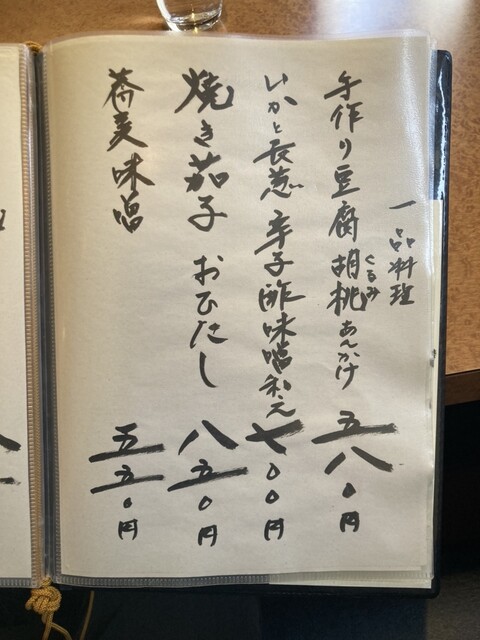 一品料理
手作り豆腐胡桃あんかけ 五八〇円
くるみ
いかと長葱辛子酢味噌和え 七〇〇円
焼き茄子 おひたし 八五〇円
蕎麦味噌 五五〇円